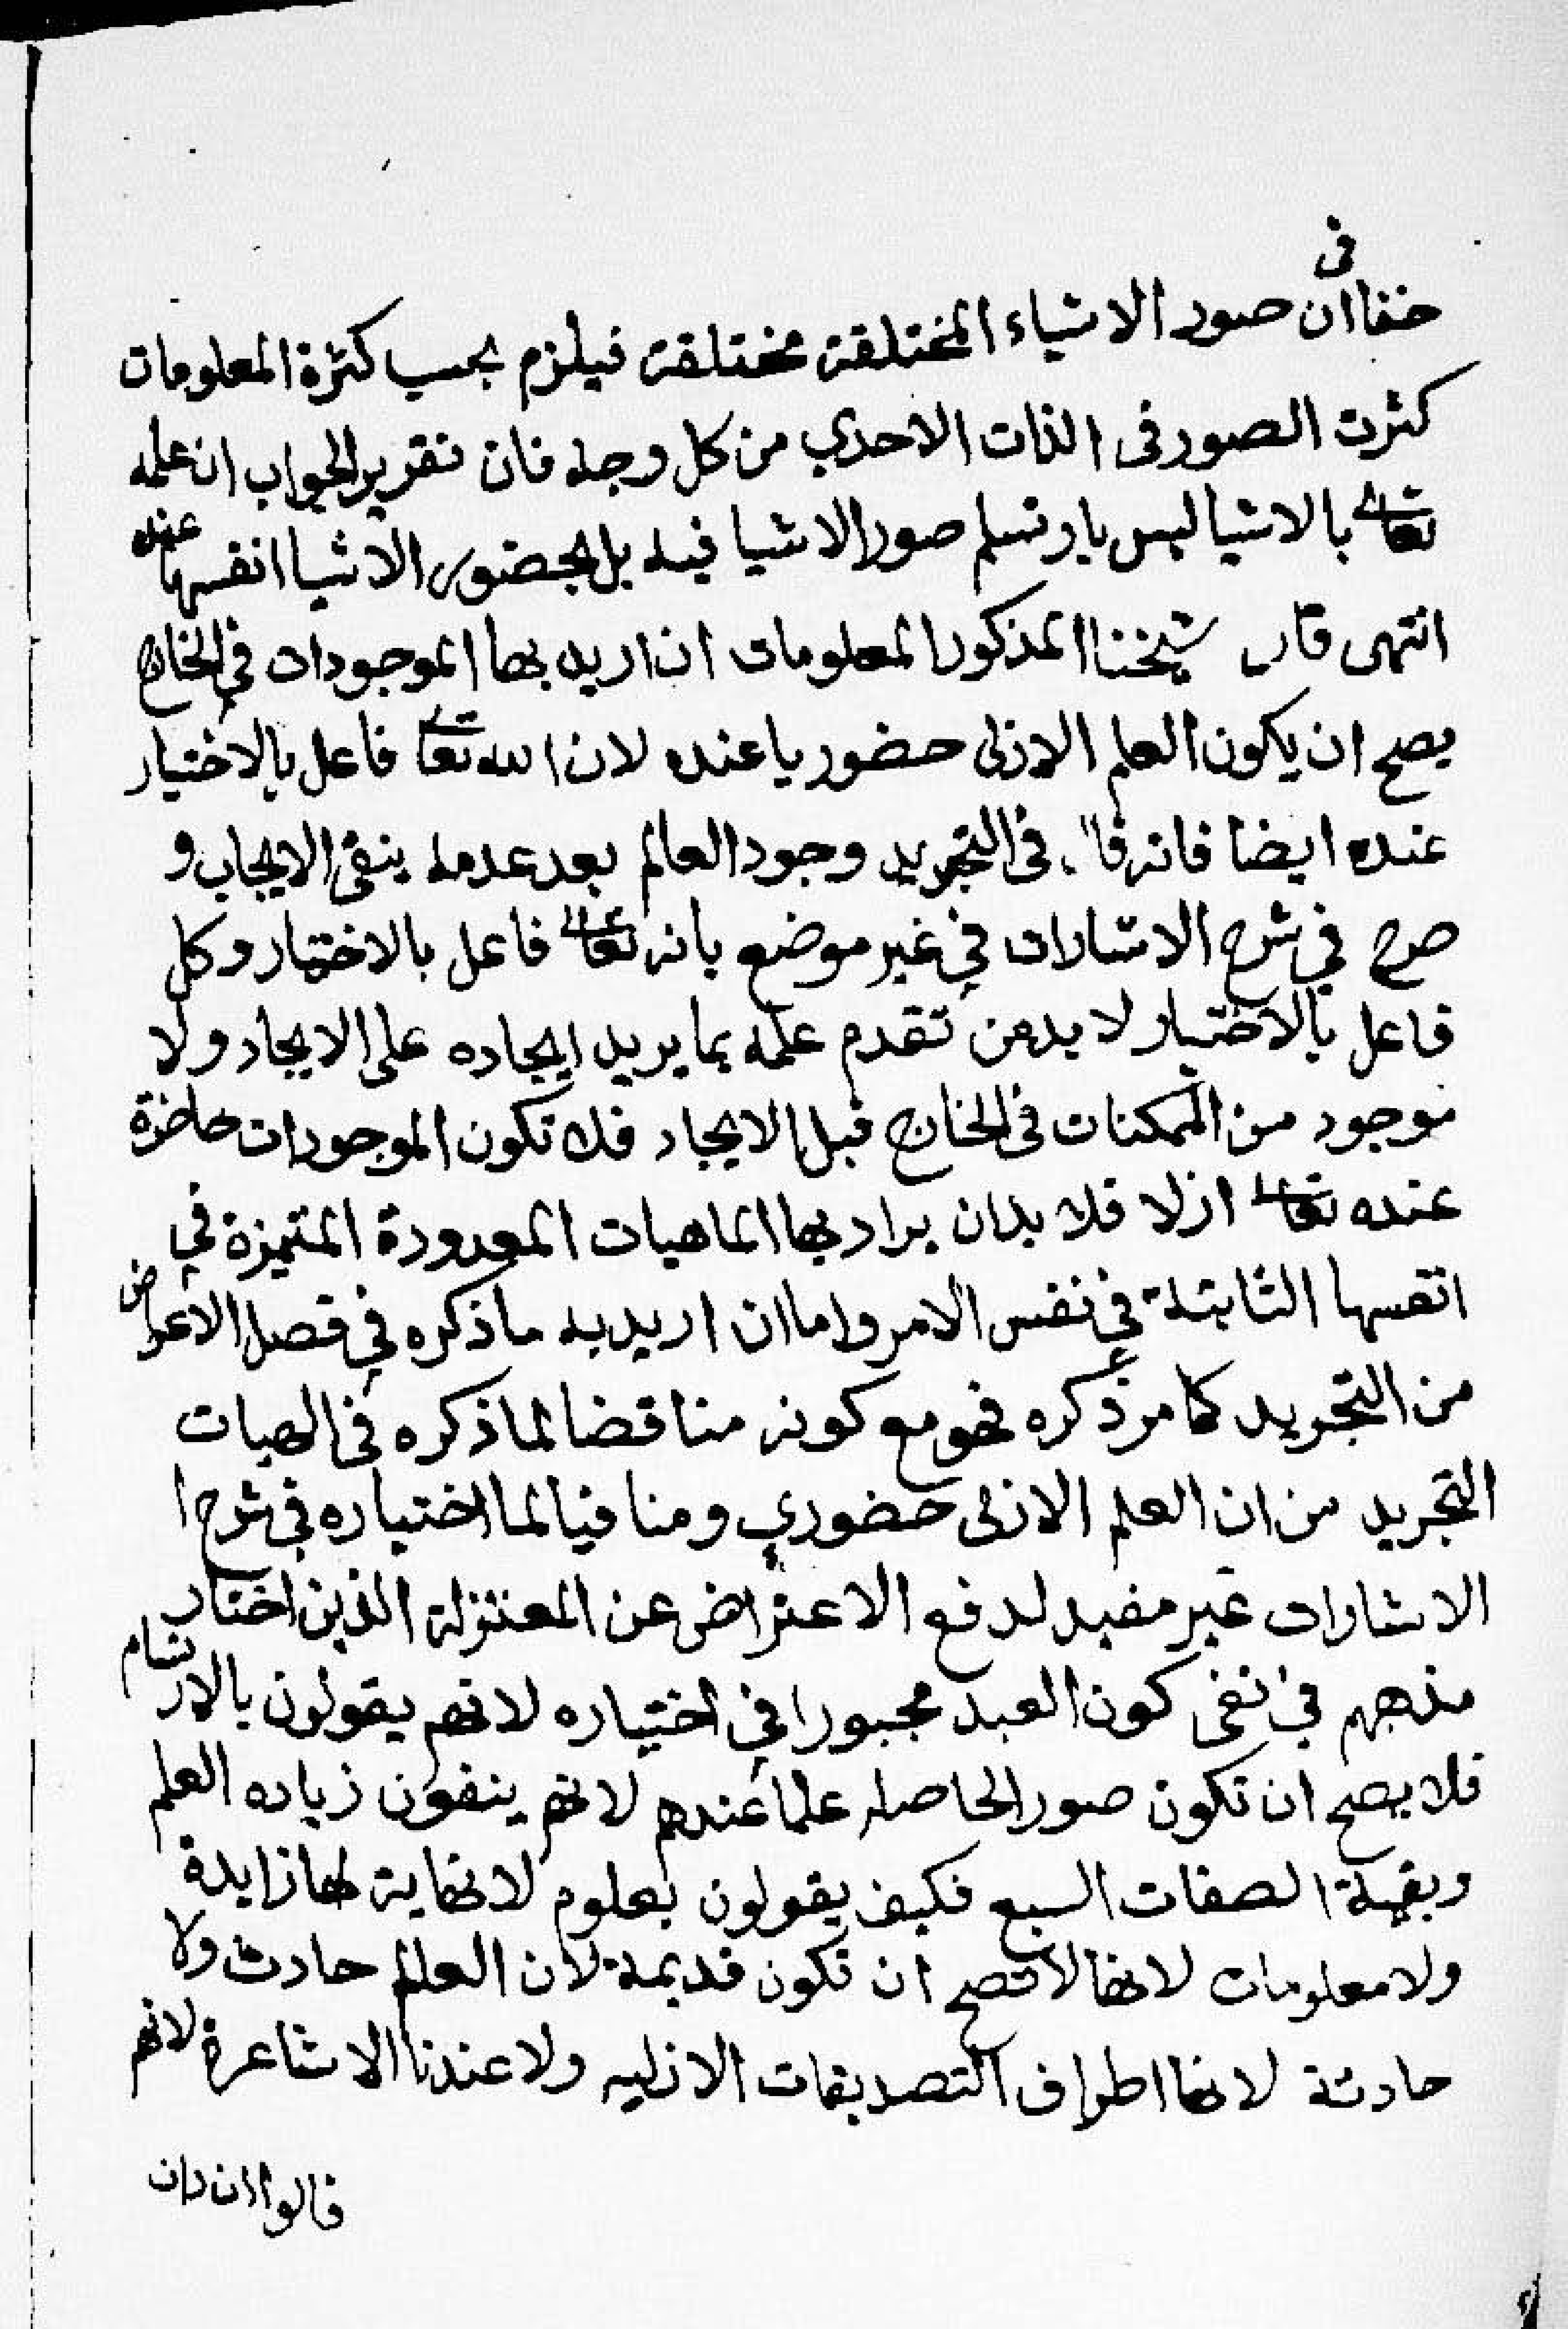 في
خفا ان صور الاشياء المختلفة مختلفة فيلزم بحسب كثرة المعلومات
كثرت الصور في الذات الاحدي من كل وجه فان تقرير الجواب ان علمه
تعالى بالاشيا ليس بارتسام صور الاشيا فيه بل بحضور الاشيا انفسها عنده
انتهى قال شيخنا المذكور المعلومات ان اريد بها الموجودات في الخارج
يصح ان يكون العلم الازلى حضوريا عنده لان الله تعالى فاعل بالاختيار
عنده ايضا فانه قال في التجريد وجود العالم بعد عدمه ينفى الايجاب و
صرح في شرح الاشارات في غير موضع بانه تعالى فاعل بالاختيار وكل
فاعل بالاختيار لا بد من تقدم علمه بما يريد ايجاده على الايجاد ولا
موجود من الممكنات في الخارج قبل الايجاد فلا تكون الموجودات حاضرة
عنده تعالى ازلا فلا بد ان يراد بها الماهيات المعدودة المتميزة في
انفسها الثابتة في نفس الامر واما ان اريد به ما ذكره في فصل الاعراض
من التجريد كما مر ذكره فهو مع كونه مناقضا لما ذكره في الهيات
التجريد من ان العلم الازلى حضوري ومنافيا لما اختياره في شرح ا
الاشارات غير مفيد لدفع الاعتراض عن المعتزلة الذين اختار
مذهبهم في نفى كون العبد مجبورا في اختياره لانهم يقولون بالارتسام
فلا يصح ان تكون صور الحاصله علما عندهم لانهم ينفون زياده العلم
وبقية الصفات السبع فكيف يقولون بعلوم لا نهاية لها زايدة
ولا معلومات لانها لا تصح ان تكون قديمة لان العالم حادث ولا
حادثة لانها اطراف التصديقات الازليه ولا عندنا الاشاعرة لانهم
قالوا ان